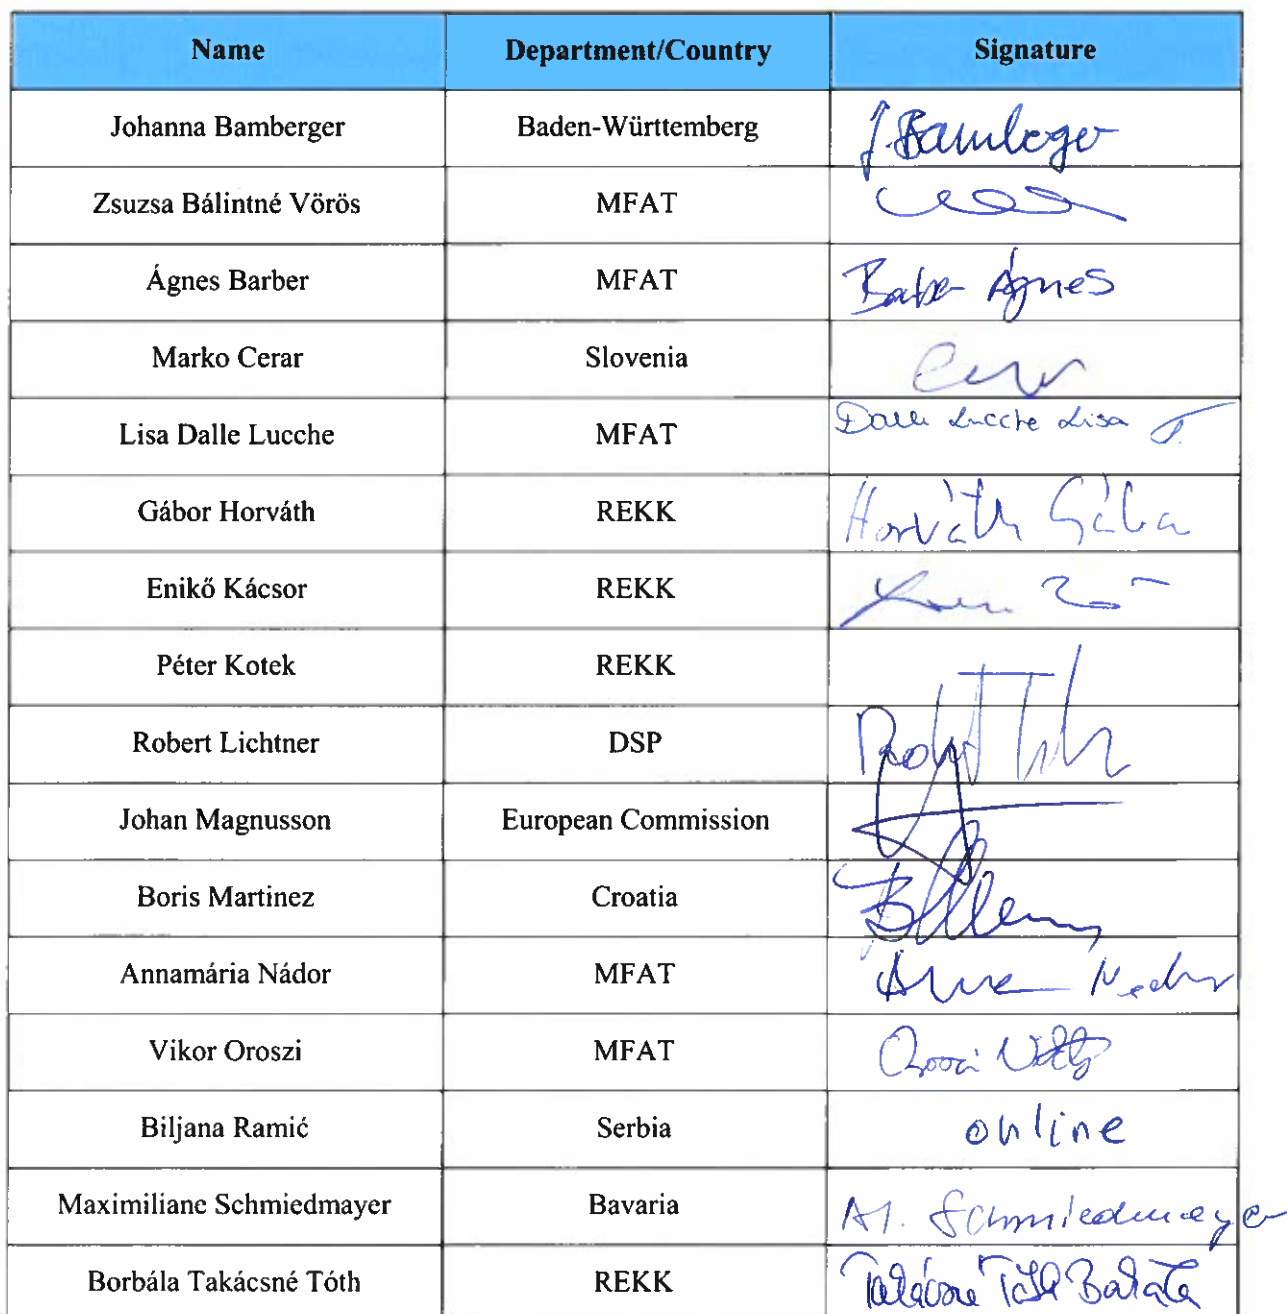 Name Department/Country Signature
Johanna Bamberger Baden-Württemberg J. Bamberger
Zsuzsa Bálintné Vörös MFAT
Ágnes Barber MFAT Barber Ágnes
Marko Cerar Slovenia
Lisa Dalle Lucche MFAT Dalle Lucche Lisa
Gábor Horváth REKK Horváth Gábor
Enikő Kácsor REKK
Péter Kotek REKK
Robert Lichtner DSP
Johan Magnusson European Commission
Boris Martinez Croatia
Annamária Nádor MFAT
Vikor Oroszi MFAT
Biljana Ramić Serbia online
Maximiliane Schmiedmayer Bavaria M. Schmiedmayer
Borbála Takácsné Tóth REKK Takácsné Tóth Borbála